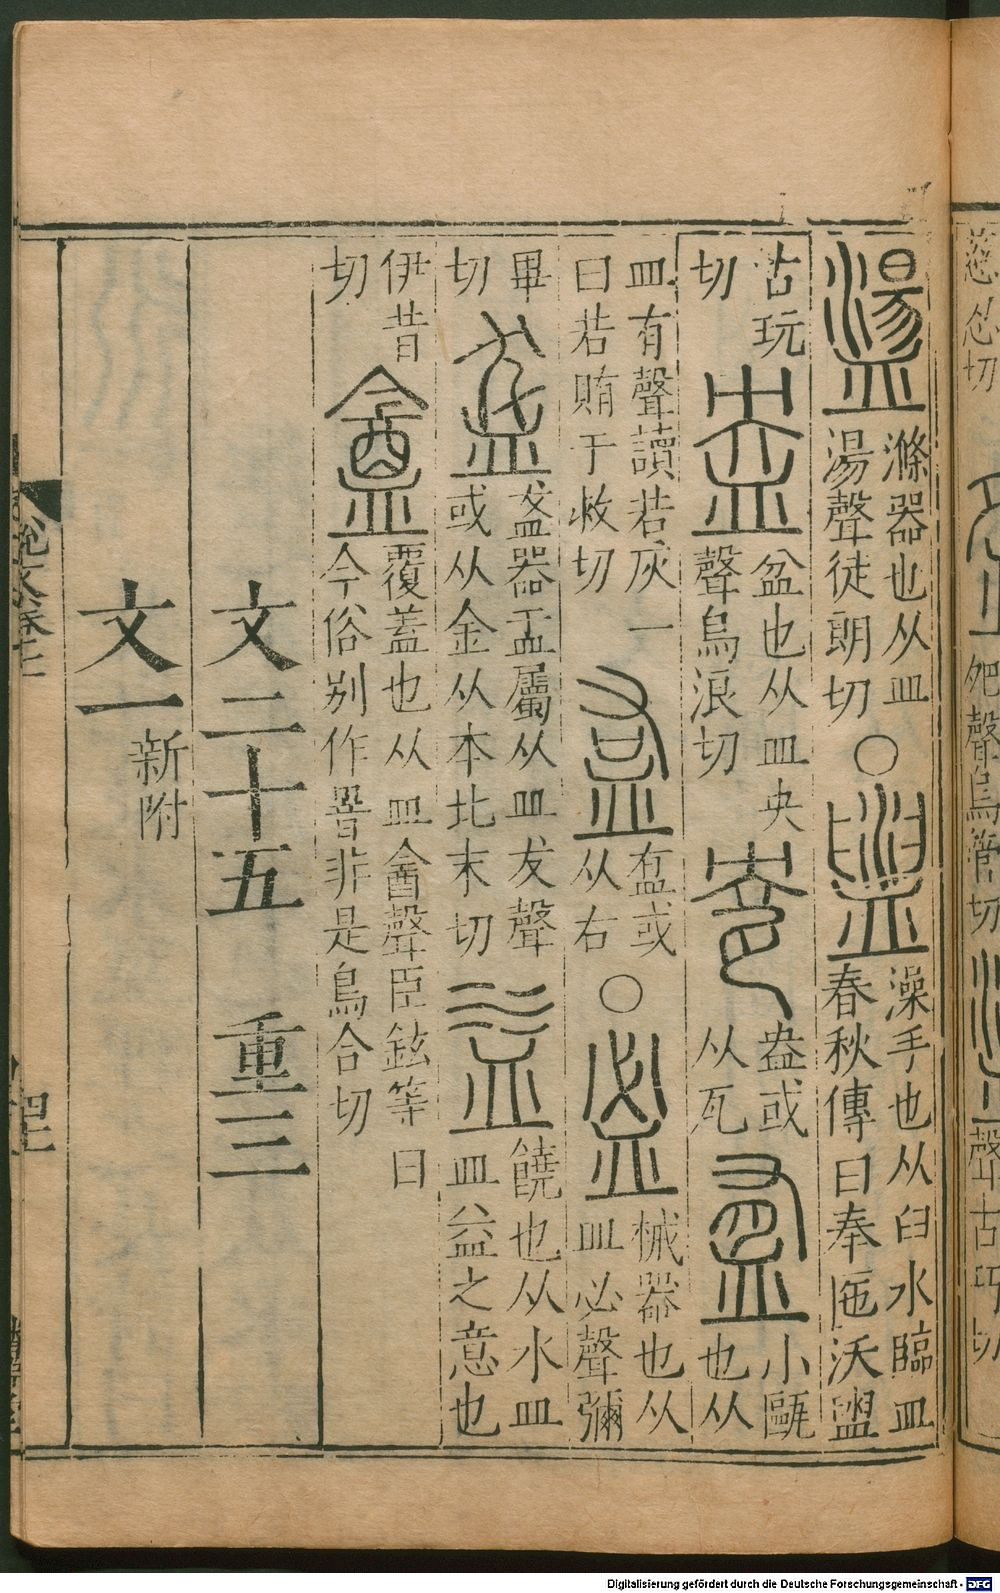 盪滌器也从皿
湯聲徒朗切○盥澡手也从臼水臨皿
春秋傳曰奉匜沃盥
古玩
切盎盆也从皿央
聲烏浪切㼜盎或
从瓦䀁小甌
也从
皿有聲讀若灰一
曰若賄于救切𥁓䀁或
从右○𥁑械器也从
皿必聲彌
畢
切盋盋器盂屬从皿犮聲
或从金从本北末切益饒也从水皿
皿益之意也
伊昔
切盦覆蓋也从皿酓聲臣鉉等曰
今俗别作罯非是烏合切
文二十五 重三
文一新附
Digitalisierung gefördert durch die Deutsche Forschungsgemeinschaft - DFG